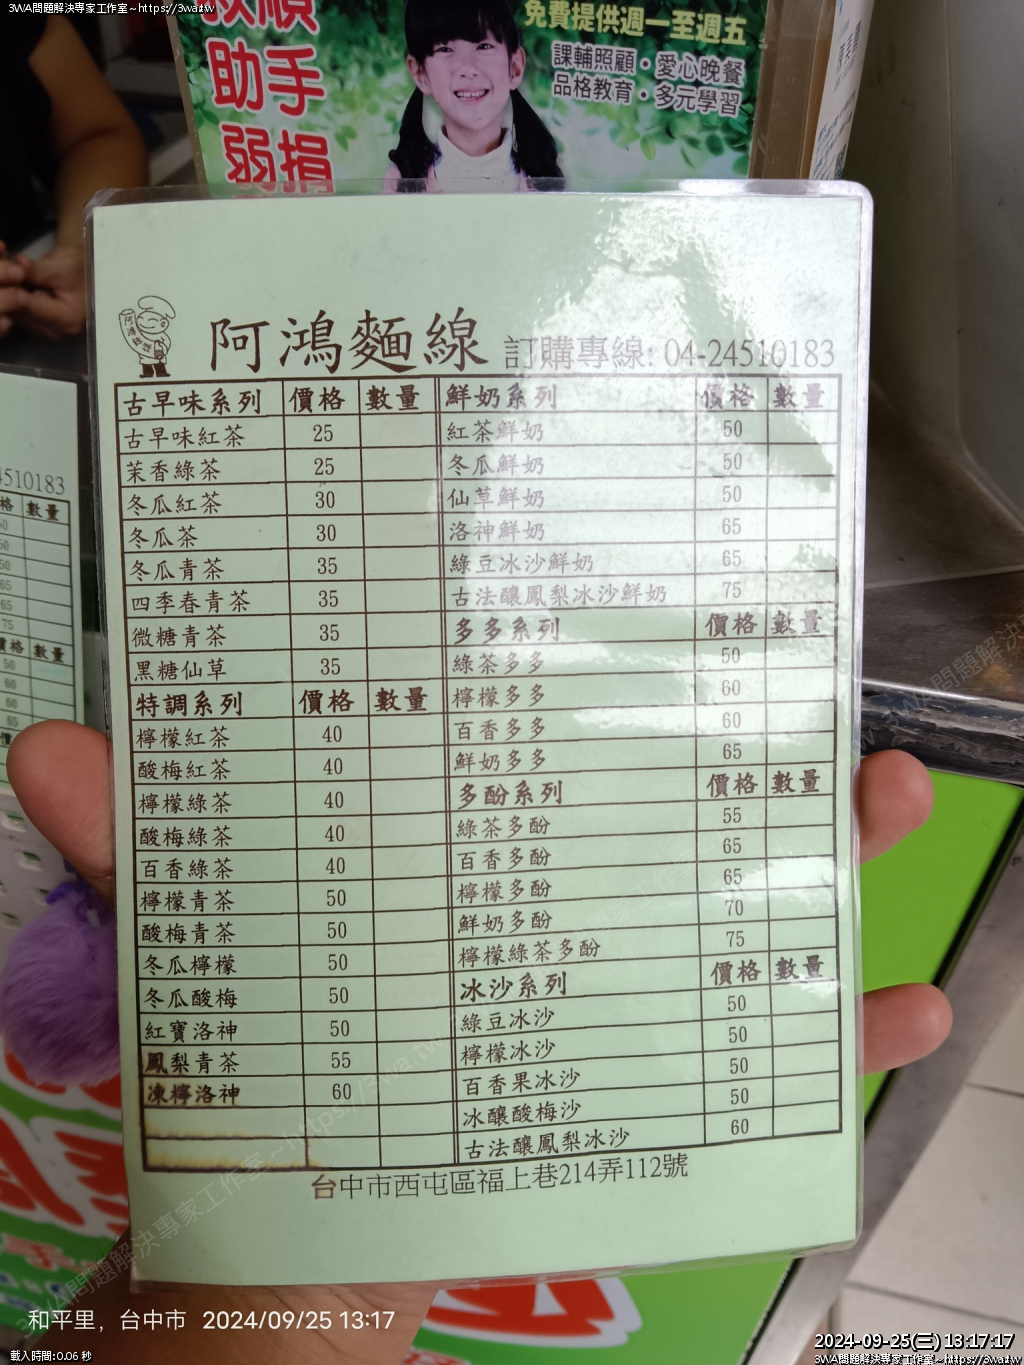 3WA問題解決專家工作室~https://3wa.tw
助手
弱捐
免費提供週一至週五
課輔照顧・愛心晚餐
品格教育・多元學習
阿鴻麵線 訂購專線: 04-24510183
古早味系列 價格 數量
古早味紅茶 25
茉香綠茶 25
冬瓜紅茶 30
冬瓜茶 30
冬瓜青茶 35
四季春青茶 35
微糖青茶 35
黑糖仙草 35
特調系列 價格 數量
檸檬紅茶 40
酸梅紅茶 40
檸檬綠茶 40
酸梅綠茶 40
百香綠茶 40
檸檬青茶 50
酸梅青茶 50
冬瓜檸檬 50
冬瓜酸梅 50
紅寶洛神 50
鳳梨青茶 55
凍檸洛神 60
鮮奶系列 價格 數量
紅茶鮮奶 50
冬瓜鮮奶 50
仙草鮮奶 50
洛神鮮奶 65
綠豆冰沙鮮奶 65
古法釀鳳梨冰沙鮮奶 75
多多系列 價格 數量
綠茶多多 50
檸檬多多 60
百香多多 60
鮮奶多多 65
多酚系列 價格 數量
綠茶多酚 55
百香多酚 65
檸檬多酚 65
鮮奶多酚 70
檸檬綠茶多酚 75
冰沙系列 價格 數量
綠豆冰沙 50
檸檬冰沙 50
百香果冰沙 50
冰釀酸梅沙 50
古法釀鳳梨冰沙 60
台中市西屯區福上巷214弄112號
4510183
格 數量
50
50
50
65
65
75
價格 數量
50
60
60
65
和平里，台中市 2024/09/25 13:17
2024-09-25(三) 13:17:17
載入時間:0.06 秒
3WA問題解決專家工作室~https://3wa.tw